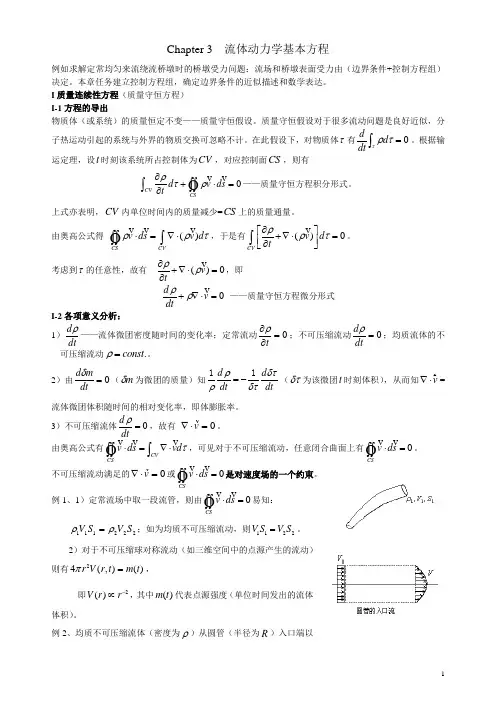 Chapter 3 流体动力学基本方程
例如求解定常均匀来流绕流桥墩时的桥墩受力问题：流场和桥墩表面受力由（边界条件+控制方程组）
决定。本章任务建立控制方程组，确定边界条件的近似描述和数学表达。
I 质量连续性方程（质量守恒方程）
I-1 方程的导出
物质体（或系统）的质量恒定不变——质量守恒假设。质量守恒假设对于很多流动问题是良好近似，分
子热运动引起的系统与外界的物质交换可忽略不计。在此假设下，对物质体τ 有 d/dt ∫_τ ρdτ = 0 。根据输
运定理，设 t 时刻该系统所占控制体为 CV ，对应控制面 CS ，则有
∫_CV ∂ρ/∂t dτ + ∯_CS ρv·ds = 0 ——质量守恒方程积分形式。
上式亦表明，CV 内单位时间内的质量减少=CS 上的质量通量。
由奥高公式得 ∯_CS ρv·ds = ∫_CV ∇·(ρv)dτ ，于是有 ∫_CV [∂ρ/∂t + ∇·(ρv)]dτ = 0 。
考虑到τ 的任意性，故有 ∂ρ/∂t + ∇·(ρv) = 0 ，即
dρ/dt + ρ∇·v = 0 ——质量守恒方程微分形式
I-2 各项意义分析：
1）dρ/dt ——流体微团密度随时间的变化率；定常流动 ∂ρ/∂t = 0 ；不可压缩流动 dρ/dt = 0 ；均质流体的不
可压缩流动 ρ = const.。
2）由 dδm/dt = 0 （δm 为微团的质量）知 1/ρ dρ/dt = − 1/δτ dδτ/dt （δτ 为该微团 t 时刻体积），从而知 ∇·v =
流体微团体积随时间的相对变化率，即体膨胀率。
3）不可压缩流体 dρ/dt = 0 ，故有 ∇·v = 0 。
由奥高公式有 ∯_CS v·ds = ∫_CV ∇·vdτ ，可见对于不可压缩流动，任意闭合曲面上有 ∯_CS v·ds = 0 。
不可压缩流动满足的 ∇·v = 0 或 ∯_CS v·ds = 0 是对速度场的一个约束。
例 1、1）定常流场中取一段流管，则由 ∯_CS v·ds = 0 易知：
ρ₁V₁S₁ = ρ₂V₂S₂ ；如为均质不可压缩流动，则 V₁S₁ = V₂S₂ 。
ρ₁,V₁,S₁
2）对于不可压缩球对称流动（如三维空间中的点源产生的流动）
则有 4πr²V(r,t) = m(t) ，
即 V(r) ∝ r⁻² ，其中 m(t) 代表点源强度（单位时间发出的流体
体积）。
圆管的入口流
例 2、均质不可压缩流体（密度为 ρ ）从圆管（半径为 R ）入口端以
1